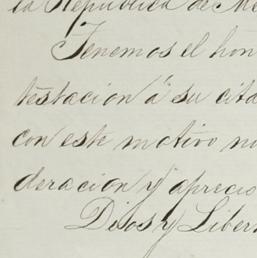 la República de Me
Tenemos el hon
testacion á su cita
con este motivo no
deracion y aprecio
Dios y Liber